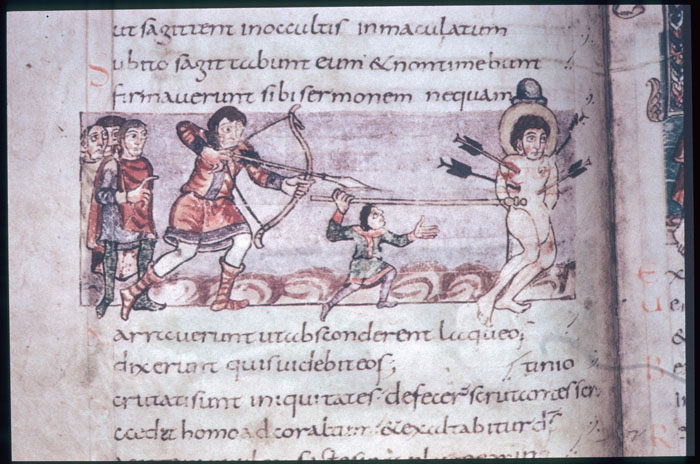 ut sagittent inoccultis inmaculatum
subito sagittabunt eum & nontimebunt
firmaverunt sibi sermonem nequam
narraverunt utabsconderent laqueos
dixerunt quisvidebiteos;
tinio
scrutatisunt iniquitates defecer scrutantes scru
accedet homo ad cor altum & exaltabitur ds